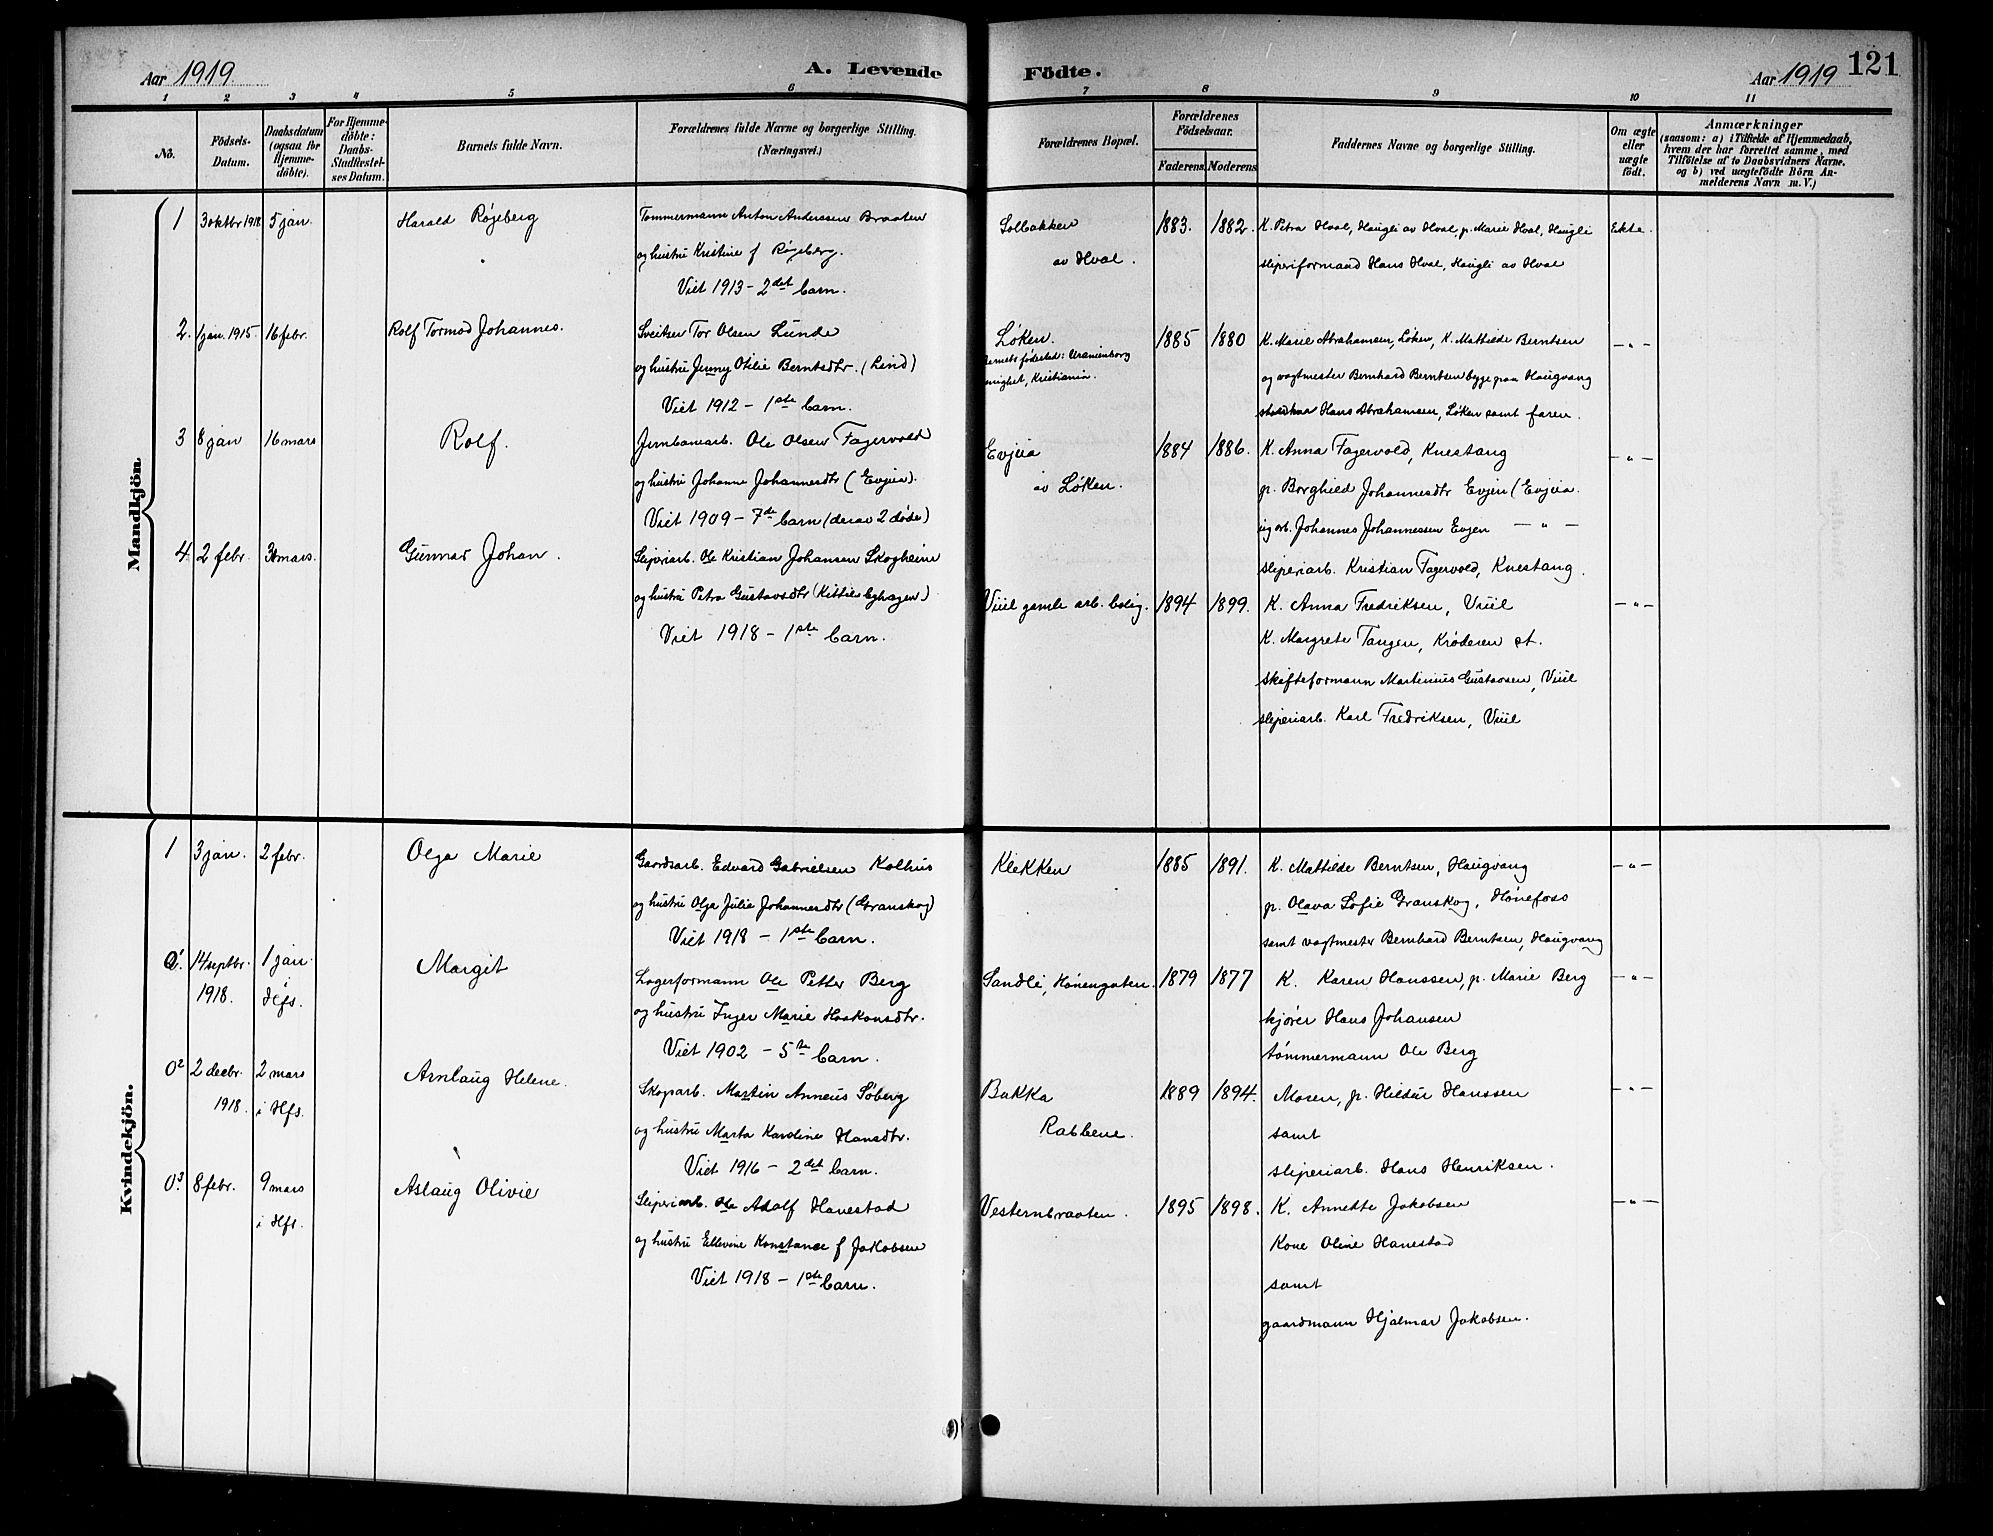 Aar 1919
A. Levende
Födte.
Aar 1919
121
1 2 3 4 5 6 7 8 9 10 11
No.
Födsels-Datum.
Daabsdatum (ogsaa for Hjemme-döbte).
For Hjemme-döbte: Daabs-Stadfæstel-ses Datum.
Barnets fulde Navn.
Forældrenes fulde Navne og borgerlige Stilling.
(Næringsvei.)
Forældrenes Bopæl.
Forældrenes Födselsaar.
Faderens. Moderens
Faddernes Navne og borgerlige Stilling.
Om ægte eller uægte födt.
Anmærkninger
(saasom: a) i Tilfælde af Hjemmedaab,
hvem der har forrettet samme, med
Tilföielse af to Daabsvidners Navne,
og b) ved uægtefödte Börn An-
melderens Navn m. V.)
Mandkjön.
1 3 oktbr 1918 5 jan. Harald Røgeberg Tømmermann Anton Anderssen Braaten Solbakken 1883. 1882. K. Petra Hval, Haugli av Hval, p. Marie Hval, Haugli Ekte.
og hustru Kristine f Røgeberg. av Hval. sliperiformand Hans Hval, Haugli av Hval
Viet 1913 - 2det barn.
2. 1 jan. 1915 16 febr. Rolf Tormod Johannes. Sveitser Tor Olsen Lunde Løken. 1885 1880 K. Marie Abrahamsen, Løken, K. Mathilde Berntsen — " —
og hustru Jenny Otilie Berntsdtr. (Lind) fødested: Uranienborg og vagtmester Bernhard Berntsen begge paa Haugvang
Viet 1912 - 1ste barn. menighet, Kristiania. Hans Abrahamsen, Løken samt faren.
3 8 jan 16 mars Rolf. Jernbanearb. Ole Olsen Fagervold Evjua 1884 1886. K. Anna Fagervold, Knestang — " —
og hustru Johanne Johannesdtr (Evjua). av Løken. p. Borghild Johannesdtr Evjen (Evjua.
Viet 1909 - 7de barn (derav 2 døde) Johannes Johannessen Evjen — " —
4. 2 febr. 30 mars. Gunnar Johan. Sliperiarb. Ole Kristian Johansen Skogheim sliperiarb. Kristian Fagervold, Knestang.
og hustru Petra Gustavsdtr Viul gamle arb. bolig. 1894 1899. K. Anna Fredriksen, Viul — " —
Viet 1918 - 1ste barn. K. Margrete Tangen, Krøderen st.
skifteformann Martinius Gustavsen, Viul
sliperiarb. Karl Fredriksen, Viul
Kvindekjön.
1 3 jan. 2 febr. Olga Marie Gaardsarb. Edvard Gabrielsen Kolhus Klekken 1885 1891. K. Mathilde Berntsen, Haugvang — " —
og hustru Olga Julie Johannesdtr (Granskog) p. Olava Sofie Granskog, Hønefoss
Viet 1918 - 1ste barn. samt vagtmester Bernhard Berntsen, Haugvang
0 1. 14 septbr. 1 jan. Margit Lagerformann Ole Petter Berg Sandli, Hønengaten. 1879 1877 K. Karen Hanssen, p. Marie Berg — " —
1918. i Hfs. og hustru Inger Marie Haakonsdtr. kjører Hans Johansen
Viet 1902 - 5te barn. tømmermann Ole Berg
0 2 2 decbr. 2 mars Arnlaug Helene. Skogarb. Martin Anneus Søberg Bakka 1889 1894. Moren, p. Hildur Hanssen — " —
1918. i Hfs. og hustru Marta Karoline Hansdtr. Rabbene. samt
Viet 1916 - 2det barn. sliperiarb. Hans Henriksen.
0 3. 8 febr. 9 mars Aslaug Olivie Sliperiarb. Ole Adolf Hanestad Vesternbraaten. 1895 1898. K. Annette Jakobsen — " —
i Hfs. og hustru Ellevine Konstance f Jakobsen Kone Oline Hanestad
Viet 1918 - 1ste barn. samt
gaardmann Hjalmar Jakobsen.